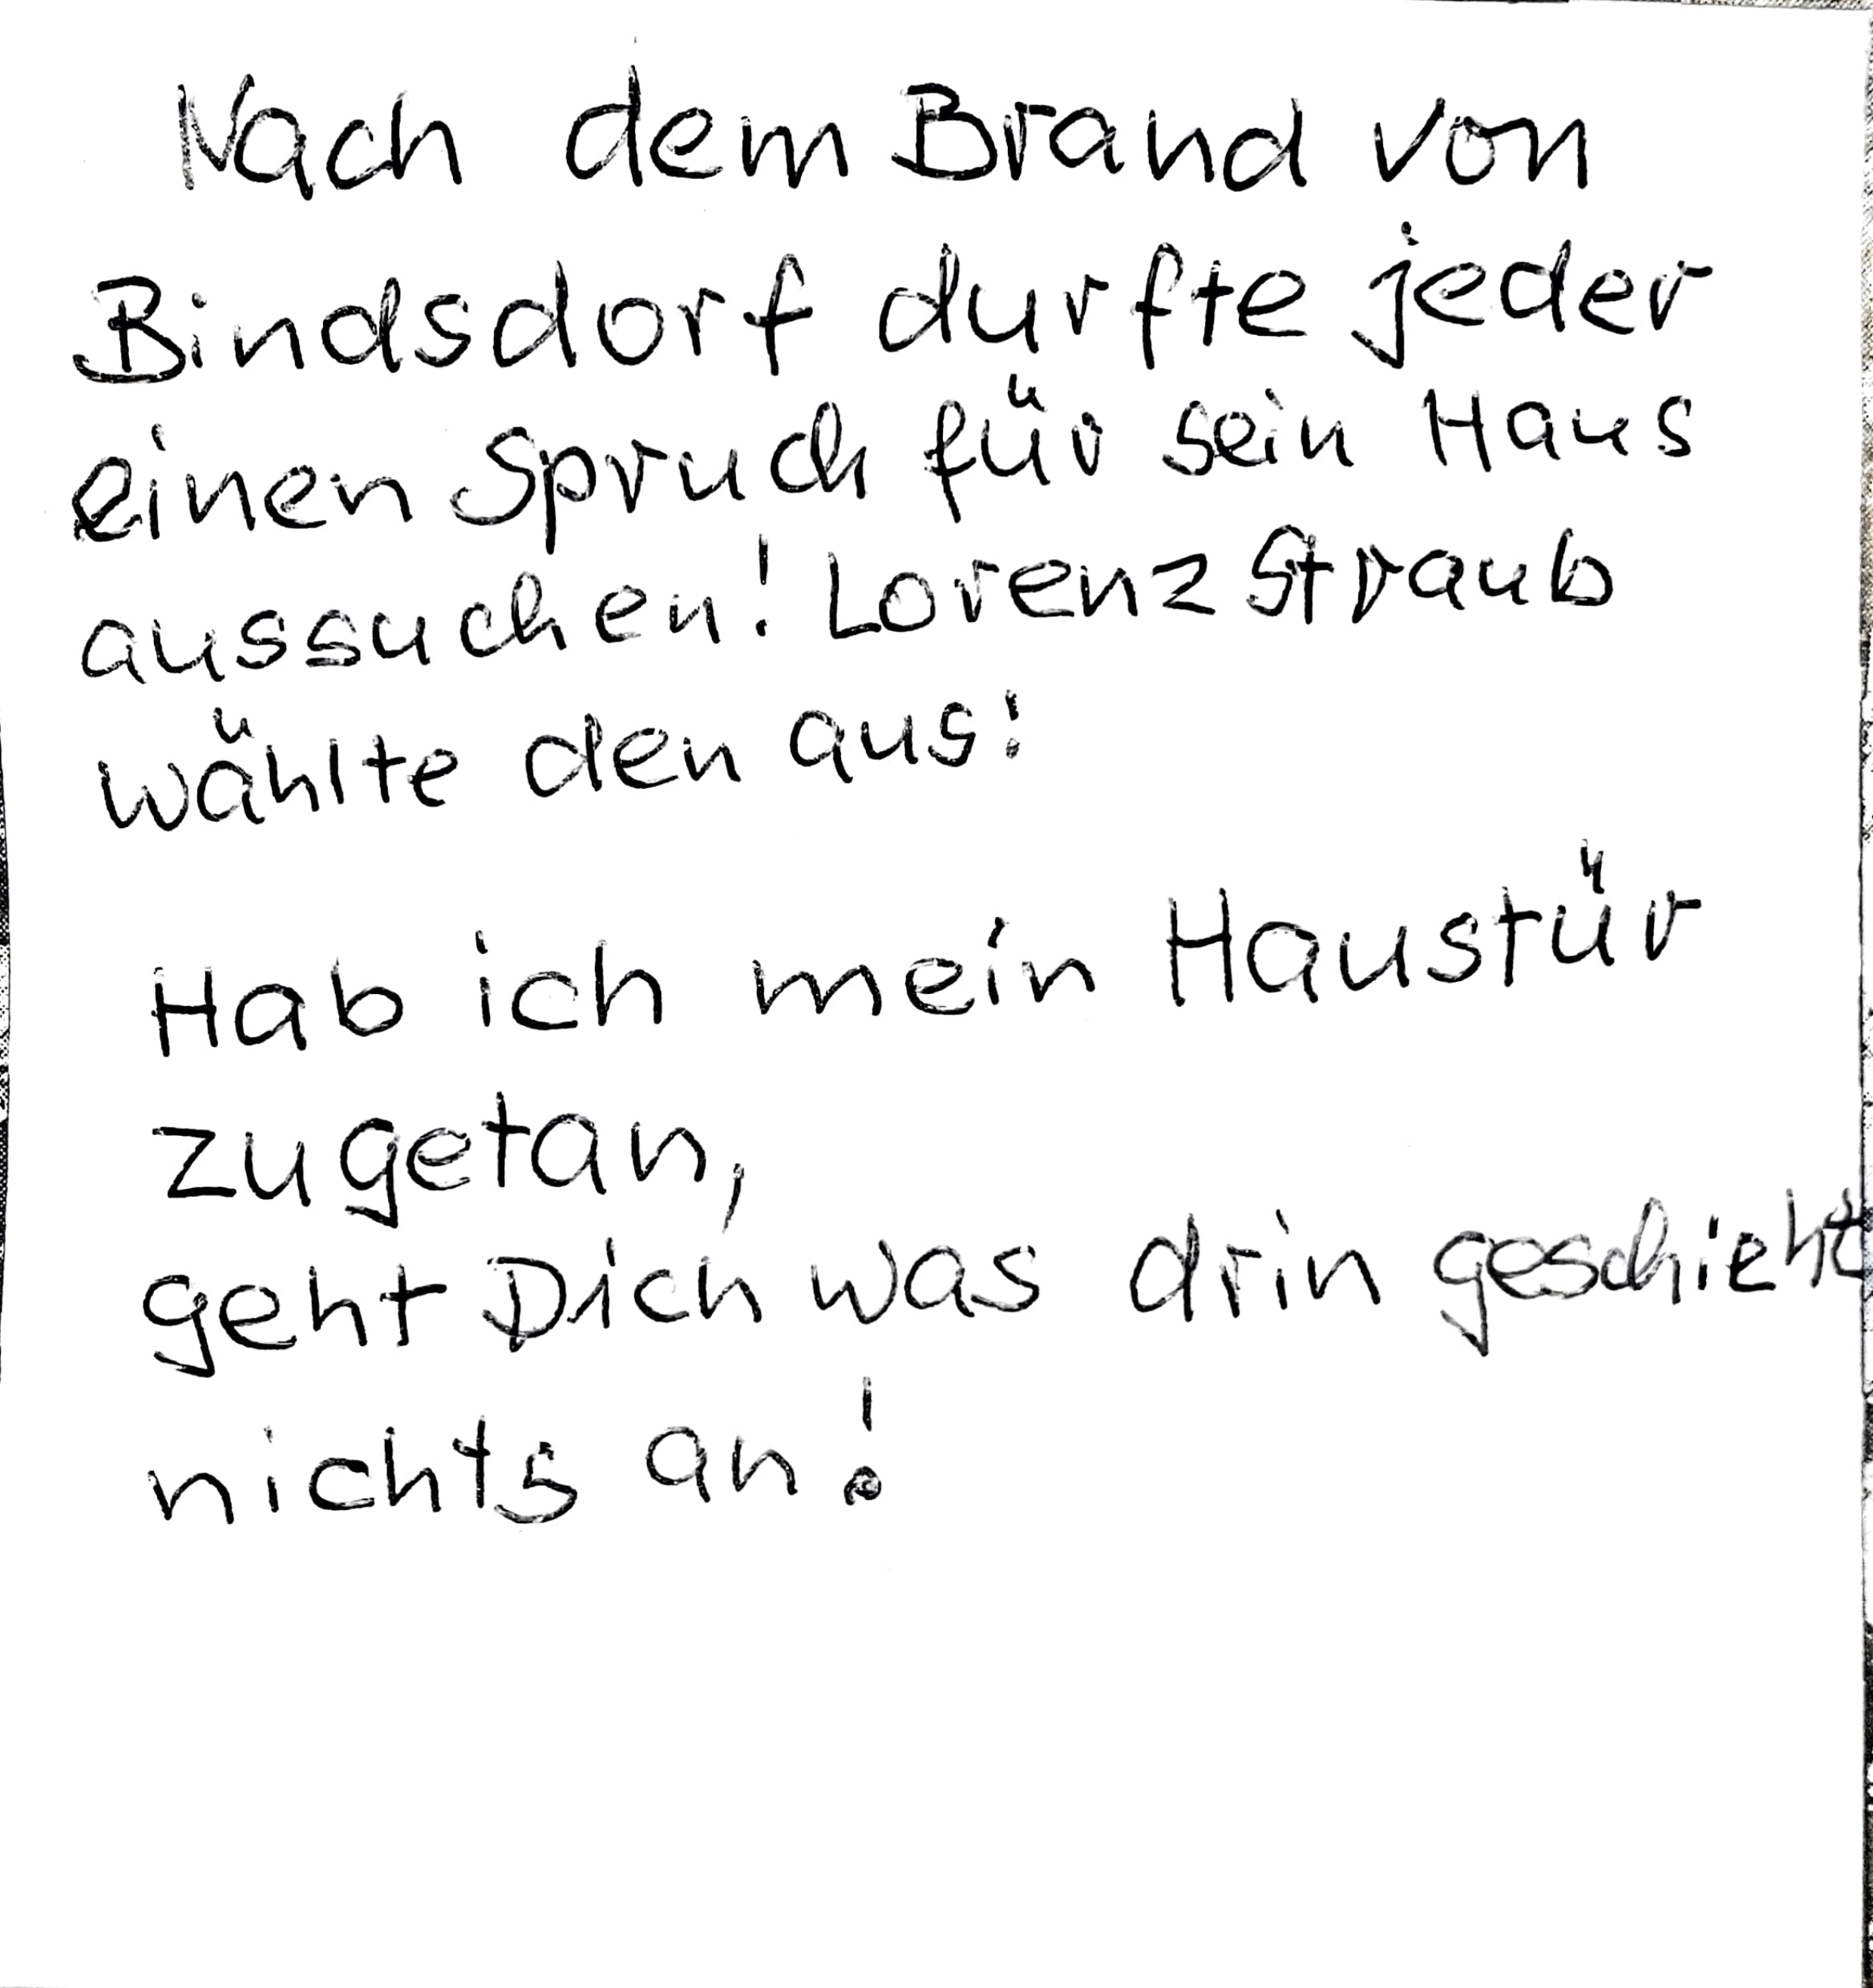 Nach dem Brand von
Bindsdorf durfte jeder
einen Spruch für sein Haus
aussuchen! Lorenz Straub
wählte den aus:
Hab ich mein Haustür
zugetan,
geht Dich was drin geschieht
nichts an!